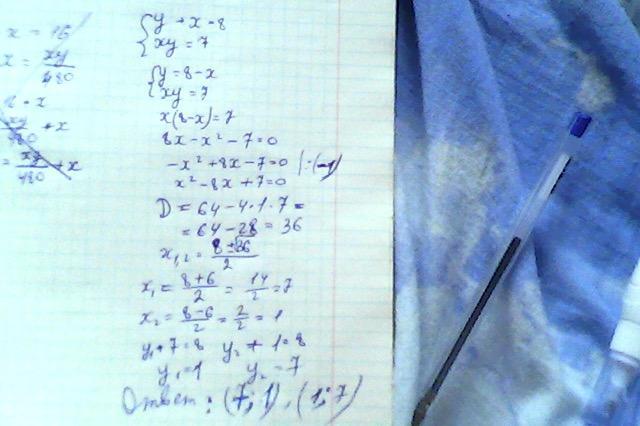 x = 16
x = xy/480
xy/480 + x
= xy/480 + x
{ y + x = 8
xy = 7
{ y = 8 - x
xy = 7
x(8-x) = 7
8x - x² - 7 = 0
-x² + 8x - 7 = 0 | : (-1)
x² - 8x + 7 = 0
D = 64 - 4 · 1 · 7 =
= 64 - 28 = 36
x₁,₂ = 8 ± √36 / 2
x₁ = 8+6/2 = 14/2 = 7
x₂ = 8-6/2 = 2/2 = 1
y₁ + 7 = 8 y₂ + 1 = 8
y₁ = 1 y₂ = 7
Ответ: (7; 1), (1; 7)